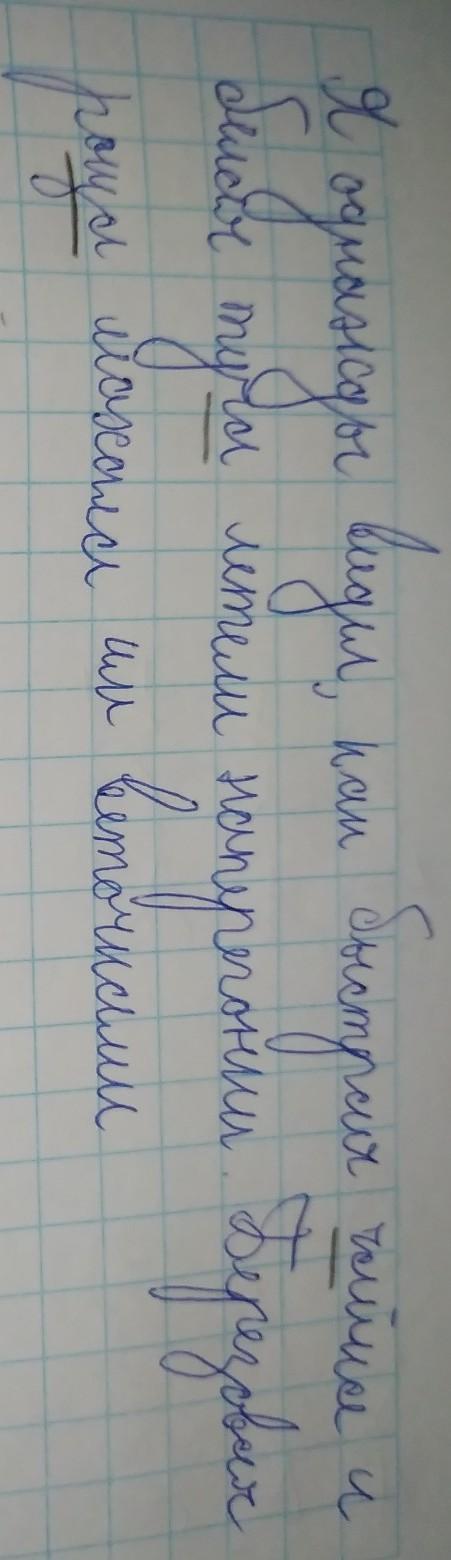 Я однажды видил, как быстрая чайка и
белая туча летели наперегонки. Берёзовая
роща махала им веточками